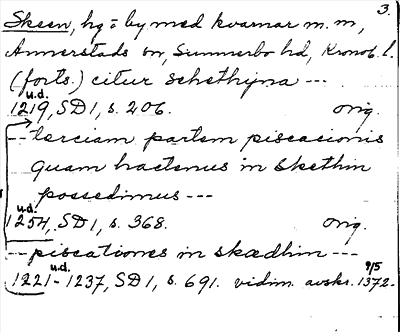 3.
Skeen, hg = by med kvarnar m. m,
Annerstads sn, Sunnerbo hd, Kronob. l.
(forts.) citur schethyna ---
u.d.
1219, SD 1, s. 206. orig.
-- terciam partem piscacionis
quam hactenus in Skethin
possedimus ---
u.d.
1254, SD 1, s. 368. orig.
-- piscationes in skædhin ---
u.d. 9/5
1221-1237, SD 1, s. 691. vidim. avskr. 1372.